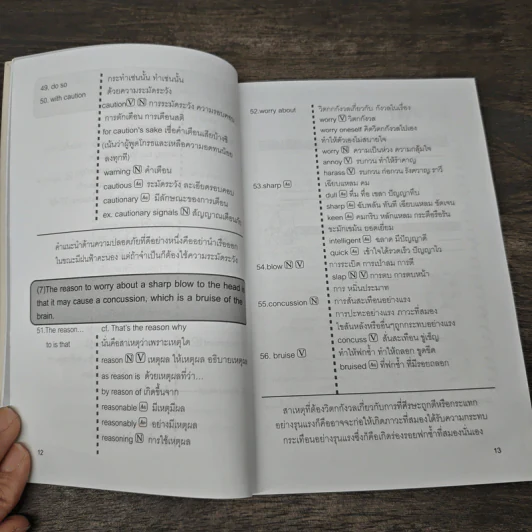 49. do so กระทำเช่นนั้น ทำเช่นนั้น
50. with caution ด้วยความระมัดระวัง
caution Ⓥ Ⓝ การระมัดระวัง ความรอบคอบ
การตักเตือน การเตือนสติ
for caution's sake
(เน้นว่าผู้พูดโกรธและเหลือความอดทนน้อย
ลงทุกที)
warning Ⓝ คำเตือน
cautious Adj ระมัดระวัง ละเอียดรอบคอบ
cautionary Adj มีลักษณะของการเตือน
ex. cautionary signals Ⓝ สัญญาณเตือนภัย
คำแนะนำด้านความปลอดภัยที่ดีอย่างหนึ่งคืออย่านำเรือออก
ในขณะมีฝนฟ้าคะนอง แต่ถ้าจำเป็นก็ต้องใช้ความระมัดระวัง
(7)The reason to worry about a sharp blow to the head is
that it may cause a concussion, which is a bruise of the
brain.
51.The reason... cf. That's the reason why
to is that นั่นคือสาเหตุว่าเพราะเหตุใด
reason Ⓝ Ⓥ เหตุผล ให้เหตุผล อธิบายเหตุผล
as reason is ด้วยเหตุผลที่ว่า...
by reason of เกิดขึ้นจาก
reasonable Adj มีเหตุมีผล
reasonably Adv อย่างมีเหตุผล
reasoning Ⓝ การใช้เหตุผล
12
52.worry about วิตกกังวลเกี่ยวกับ กังวลในเรื่อง
worry Ⓥ วิตกกังวล
worry oneself คิดวิตกกังวลไปเอง
ทำให้ตัวเองไม่สบายใจ
worry Ⓝ ความเป็นห่วง ความกลุ้มใจ
annoy Ⓥ รบกวน ทำให้รำคาญ
harass Ⓥ รบกวน ก่อกวน รังควาญ ราวี
53.sharp Adj เฉียบแหลม คม
dull Adj ทึ่ม ทื่อ เขลา ปัญญาทึบ
sharp Adv ฉับพลัน ทันที เฉียบแหลม ชัดเจน
keen Adj คมกริบ หลักแหลม กระตือรือร้น
ขะมักเขม้น ยอดเยี่ยม
intelligent Adj ฉลาด มีปัญญาดี
quick Adj เข้าใจได้รวดเร็ว ปัญญาไว
54.blow Ⓝ Ⓥ การระเบิด การเป่าลม การตี
slap Ⓝ Ⓥ การตบ การตบหน้า
การ หมิ่นประมาท
55.concussion Ⓝ การสั่นสะเทือนอย่างแรง
การปะทะอย่างแรง ภาวะที่สมอง
ไขสันหลังหรืออื่นๆถูกกระทบอย่างแรง
concuss Ⓥ สั่นสะเทือน ขู่เข็ญ
56. bruise Ⓥ ทำให้ฟกช้ำ ทำให้ถลอก ขูดขีด
bruised Adj ที่ฟกช้ำ ที่มีรอยถลอก
สาเหตุที่ต้องวิตกกังวลเกี่ยวกับการที่ศีรษะถูกตีหรือกระแทก
อย่างรุนแรงก็คืออาจจะก่อให้เกิดภาวะที่สมองได้รับความกระทบ
กระเทือนอย่างรุนแรงซึ่งก็คือเกิดร่องรอยฟกช้ำที่สมองนั่นเอง
13